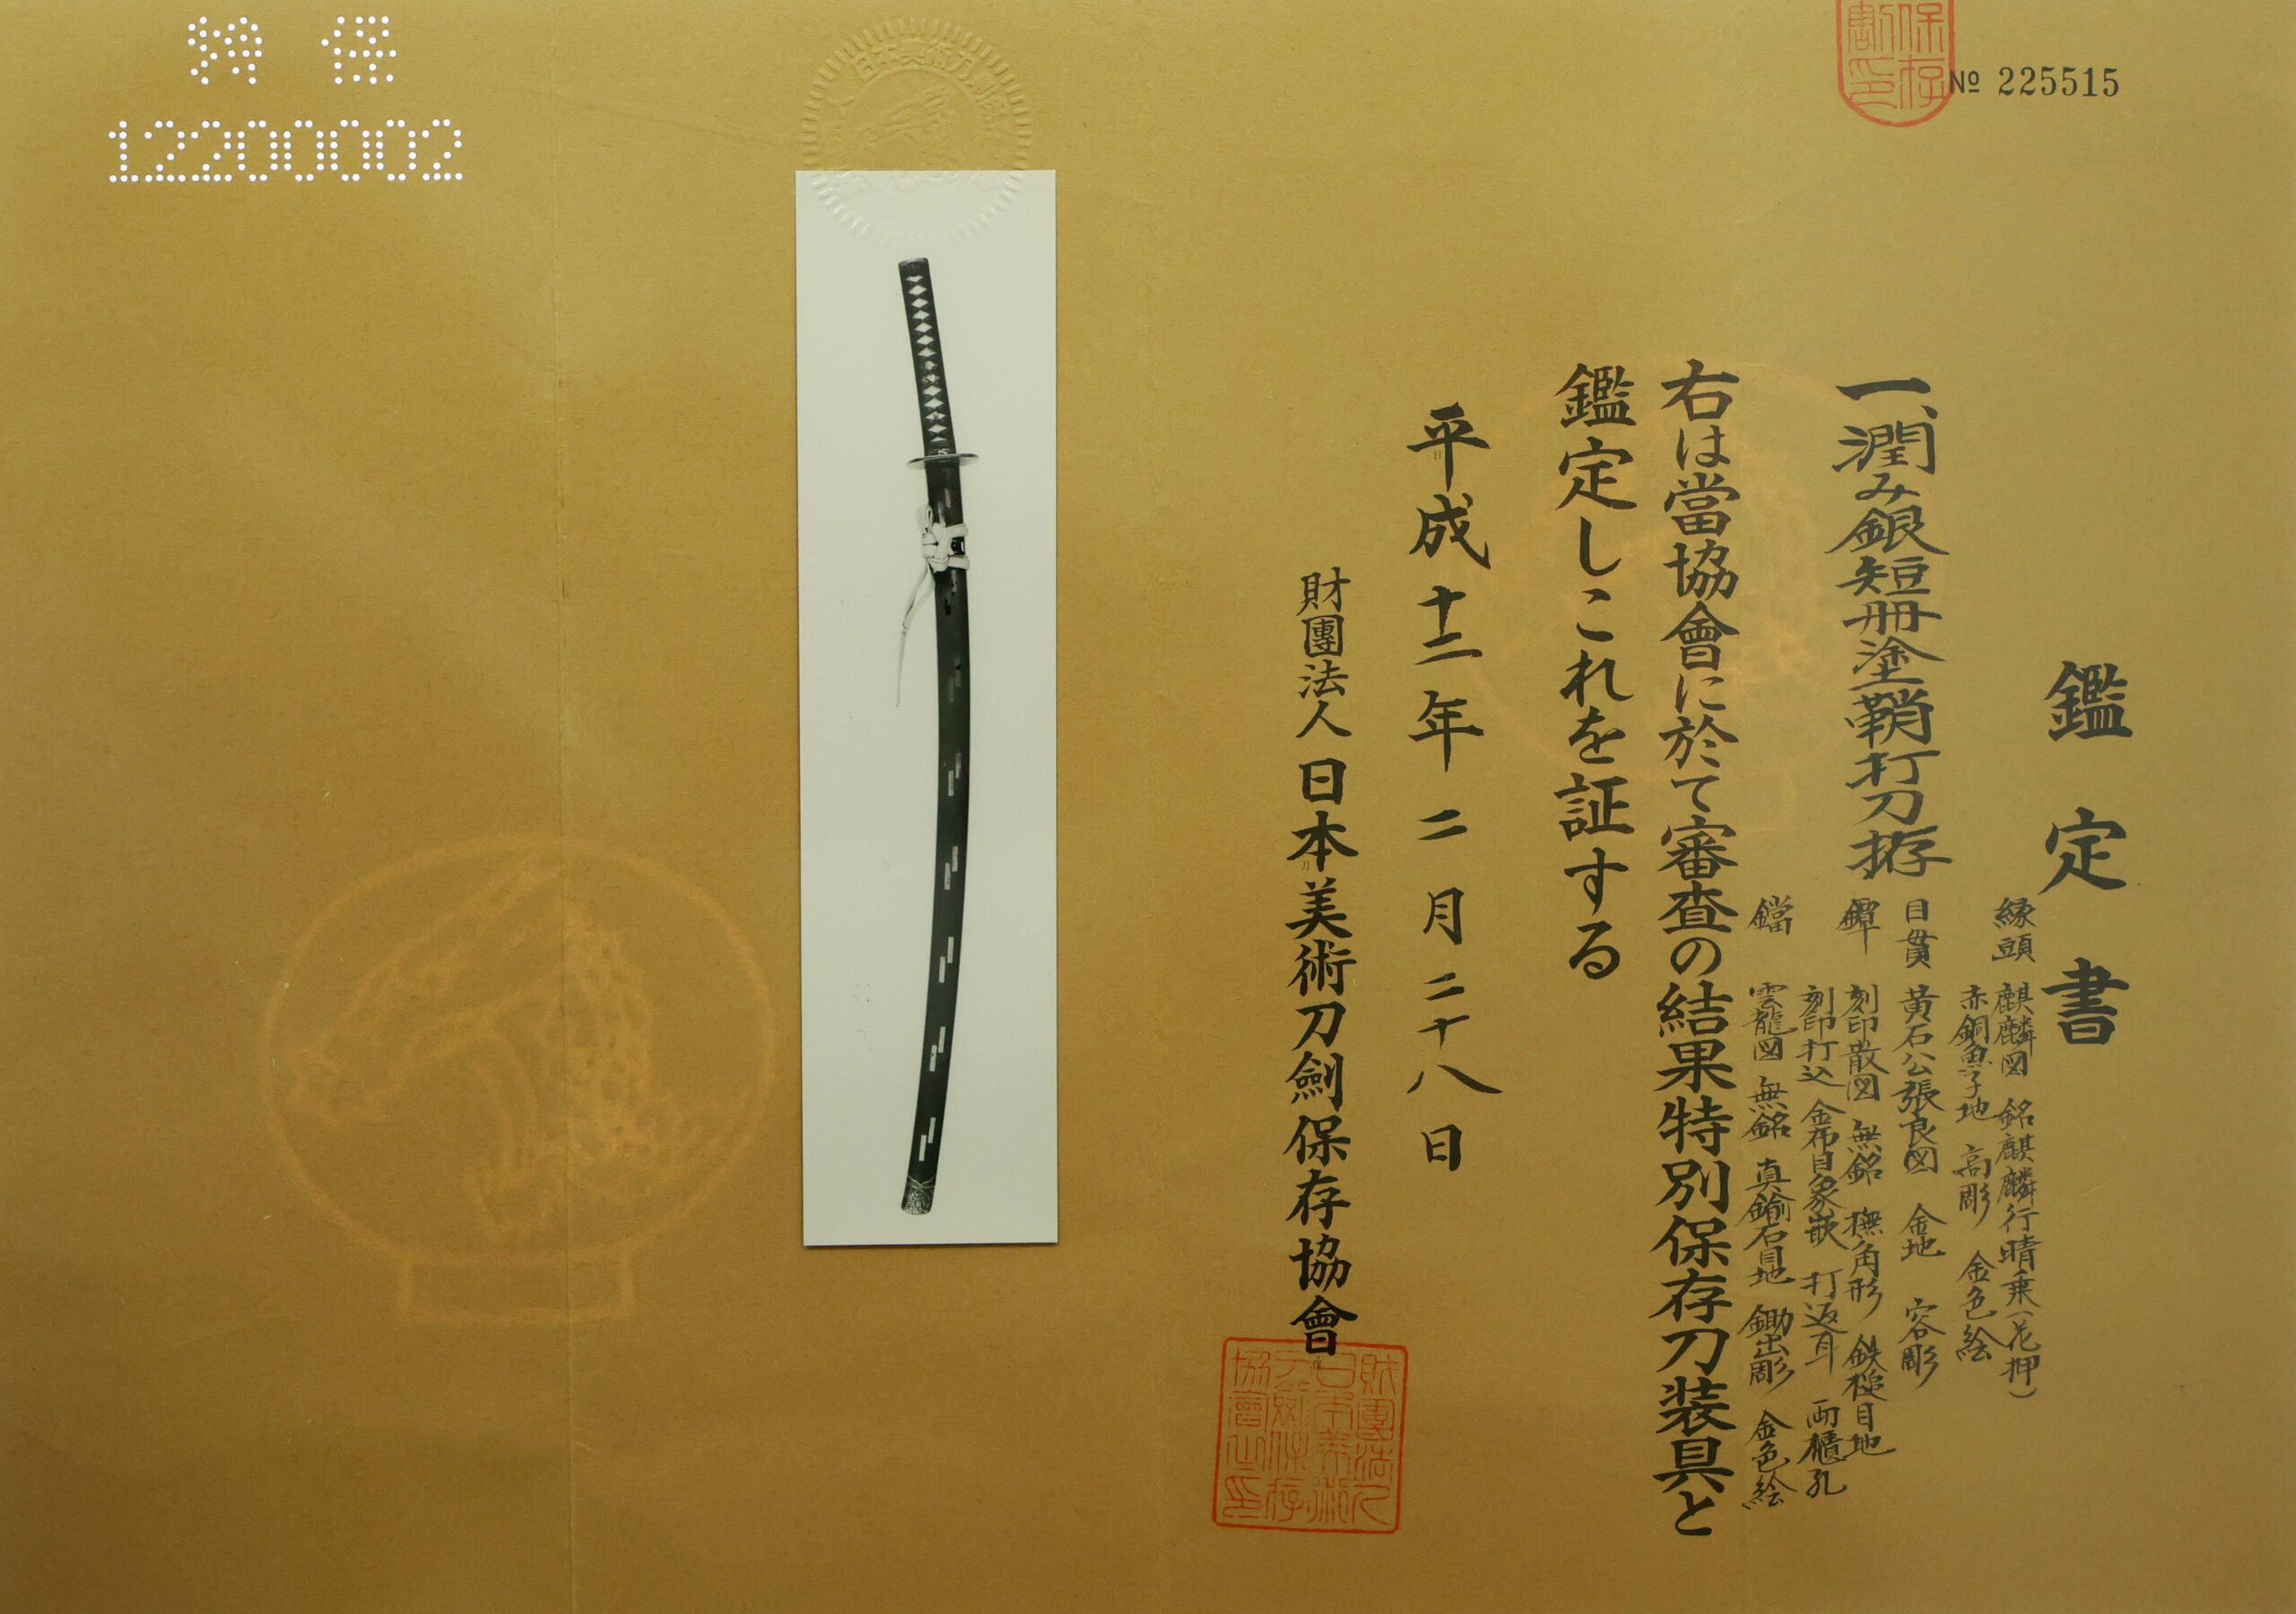 鑑定書
一、潤み銀短冊塗鞘打刀拵
縁頭 麒麟図 銘麒麟行晴乗(花押)
赤銅魚子地 高彫 金色絵
目貫 黄石公張良図 金地 容彫
鐔 刻印散図 無銘 撫角形 鉄槌目地
刻印打込 金布目象嵌 打返耳 両櫃孔
鐺 雲龍図 無銘 真鍮石目地 鋤出彫 金色絵
右は當協會に於て審査の結果特別保存刀装具と
鑑定しこれを証する
平成十二年二月二十八日
財團法人 日本美術刀劍保存協會
財團法人日本美術刀劍保存協會之印
№ 225515
保存
割印
特保
12200002